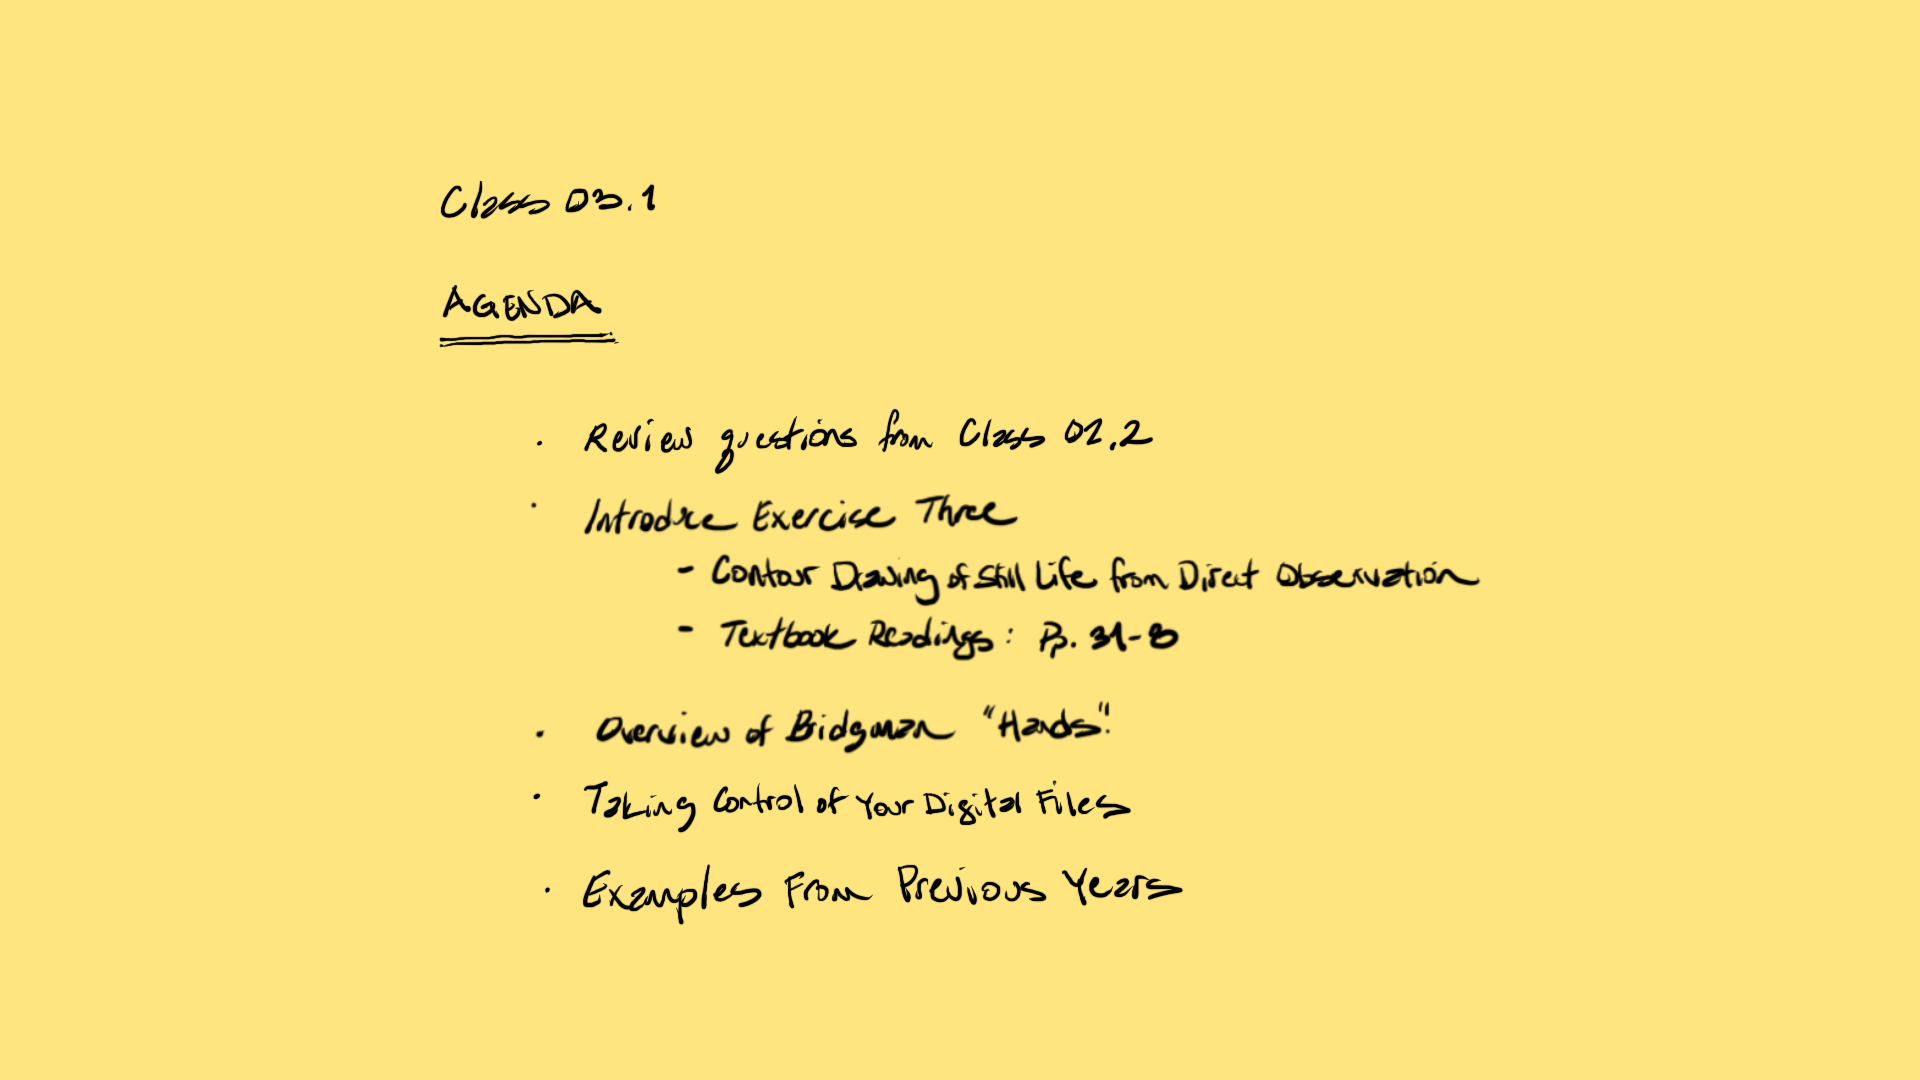 Class 03.1
AGENDA
· Review questions from Class 02.2
· Introduce Exercise Three
- Contour Drawing of Still Life from Direct Observation
- Textbook Readings: Pp. 31-8
· Overview of Bridgman "Hands".
· Taking Control of Your Digital Files
· Examples From Previous Years